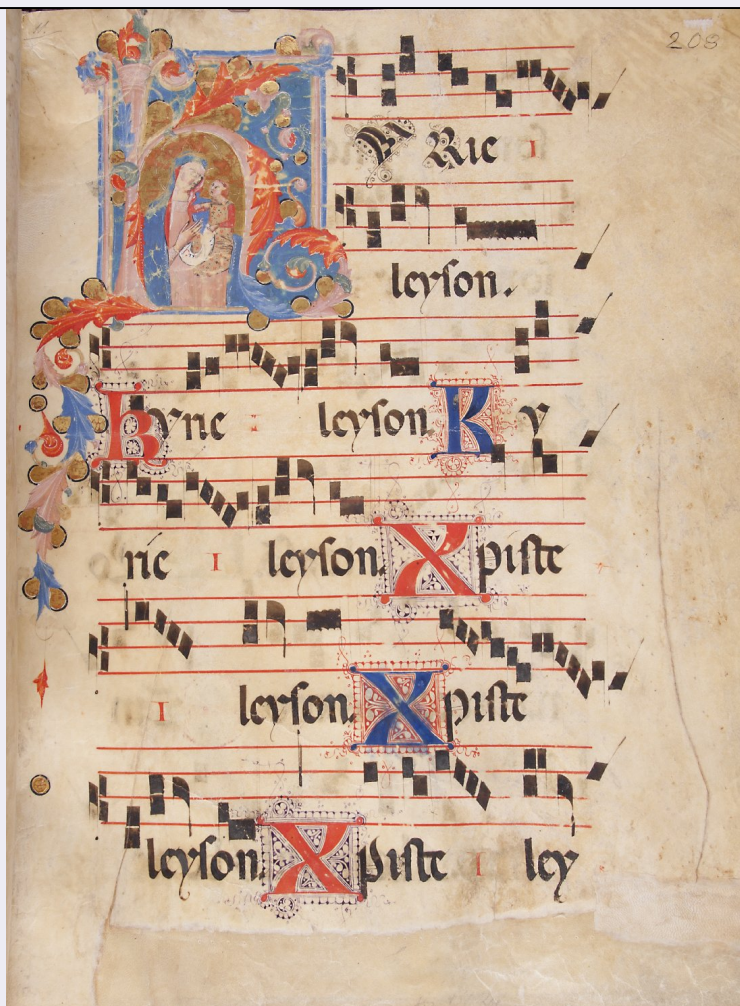 208
KYRie I
leyson.
kyrie I leyson Ky
rie I leyson. Xpiste
I leyson. Xpiste
leyson. Xpiste I ley